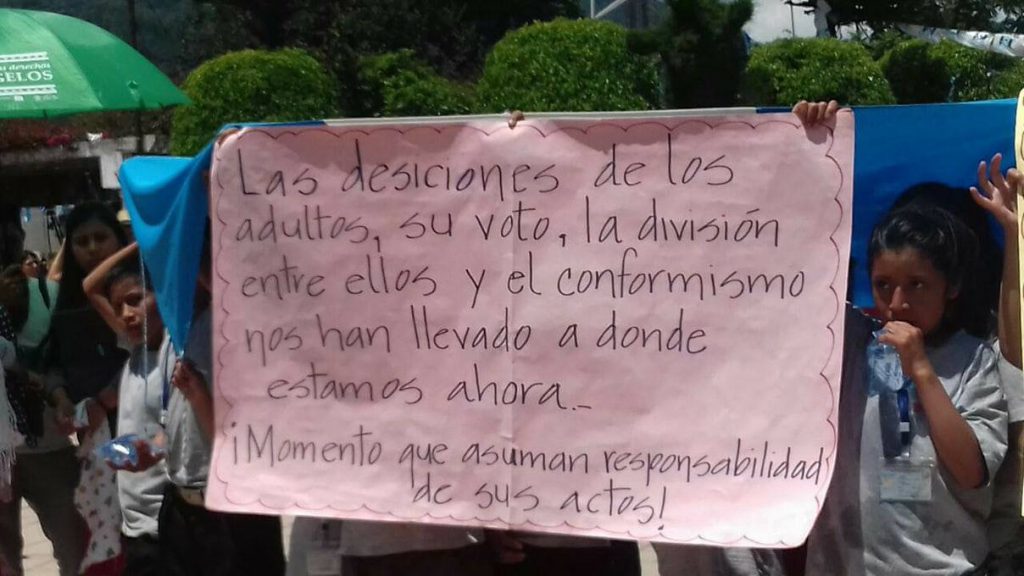 derechos
GELOS
Las desiciones de los
adultos, su voto, la división
entre ellos y el conformismo
nos han llevado a donde
estamos ahora...
¡Momento que asuman responsabilidad
de sus actos!